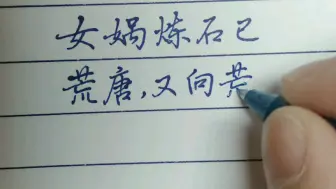 女娲炼石已
荒唐,又向荒